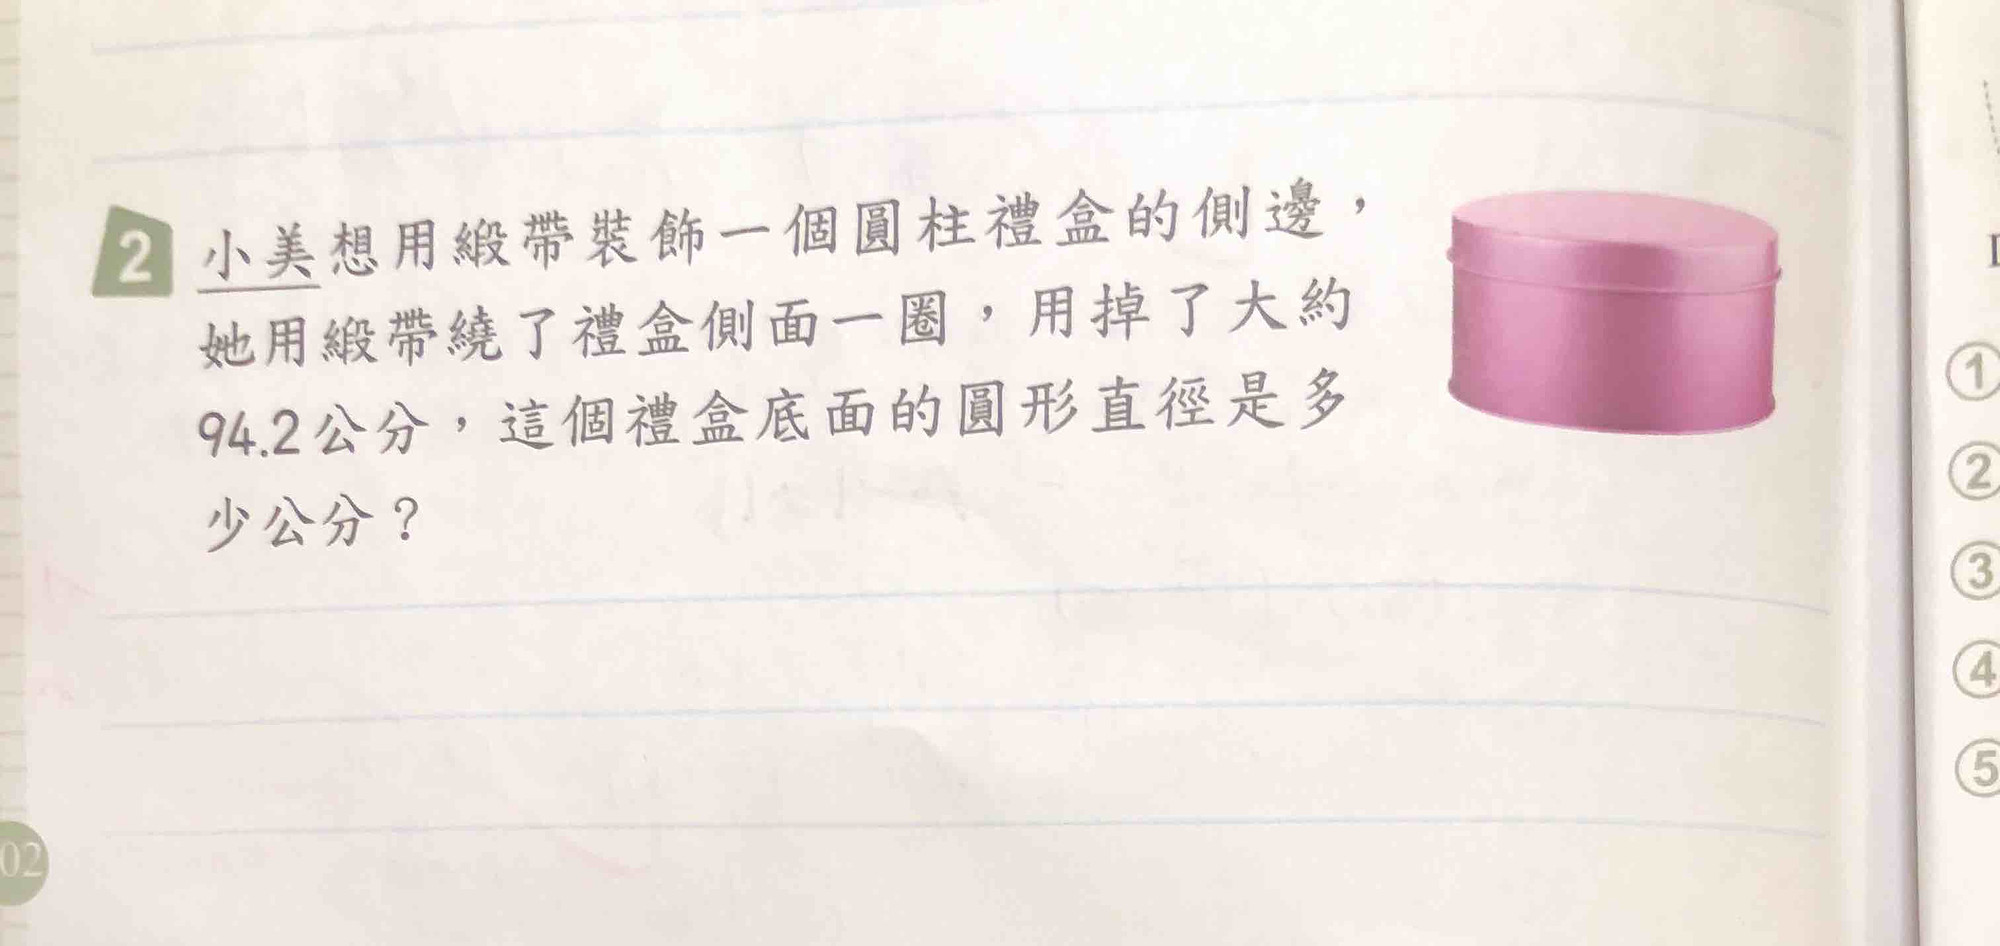 2 小美想用緞帶裝飾一個圓柱禮盒的側邊，
她用緞帶繞了禮盒側面一圈，用掉了大約
94.2公分，這個禮盒底面的圓形直徑是多
少公分？
02
①
②
③
④
⑤